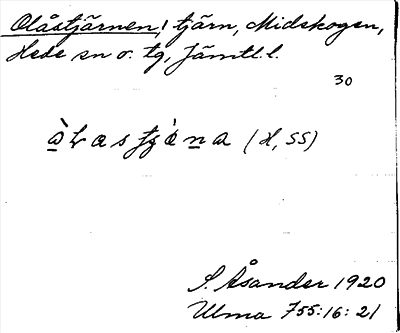 Olåstjärnen, tjärn, Midskogen,
Hede sn o. tg, Jämtl. l.
30
(H, SS)
S. Åsander 1920
Ulma 755:16:21